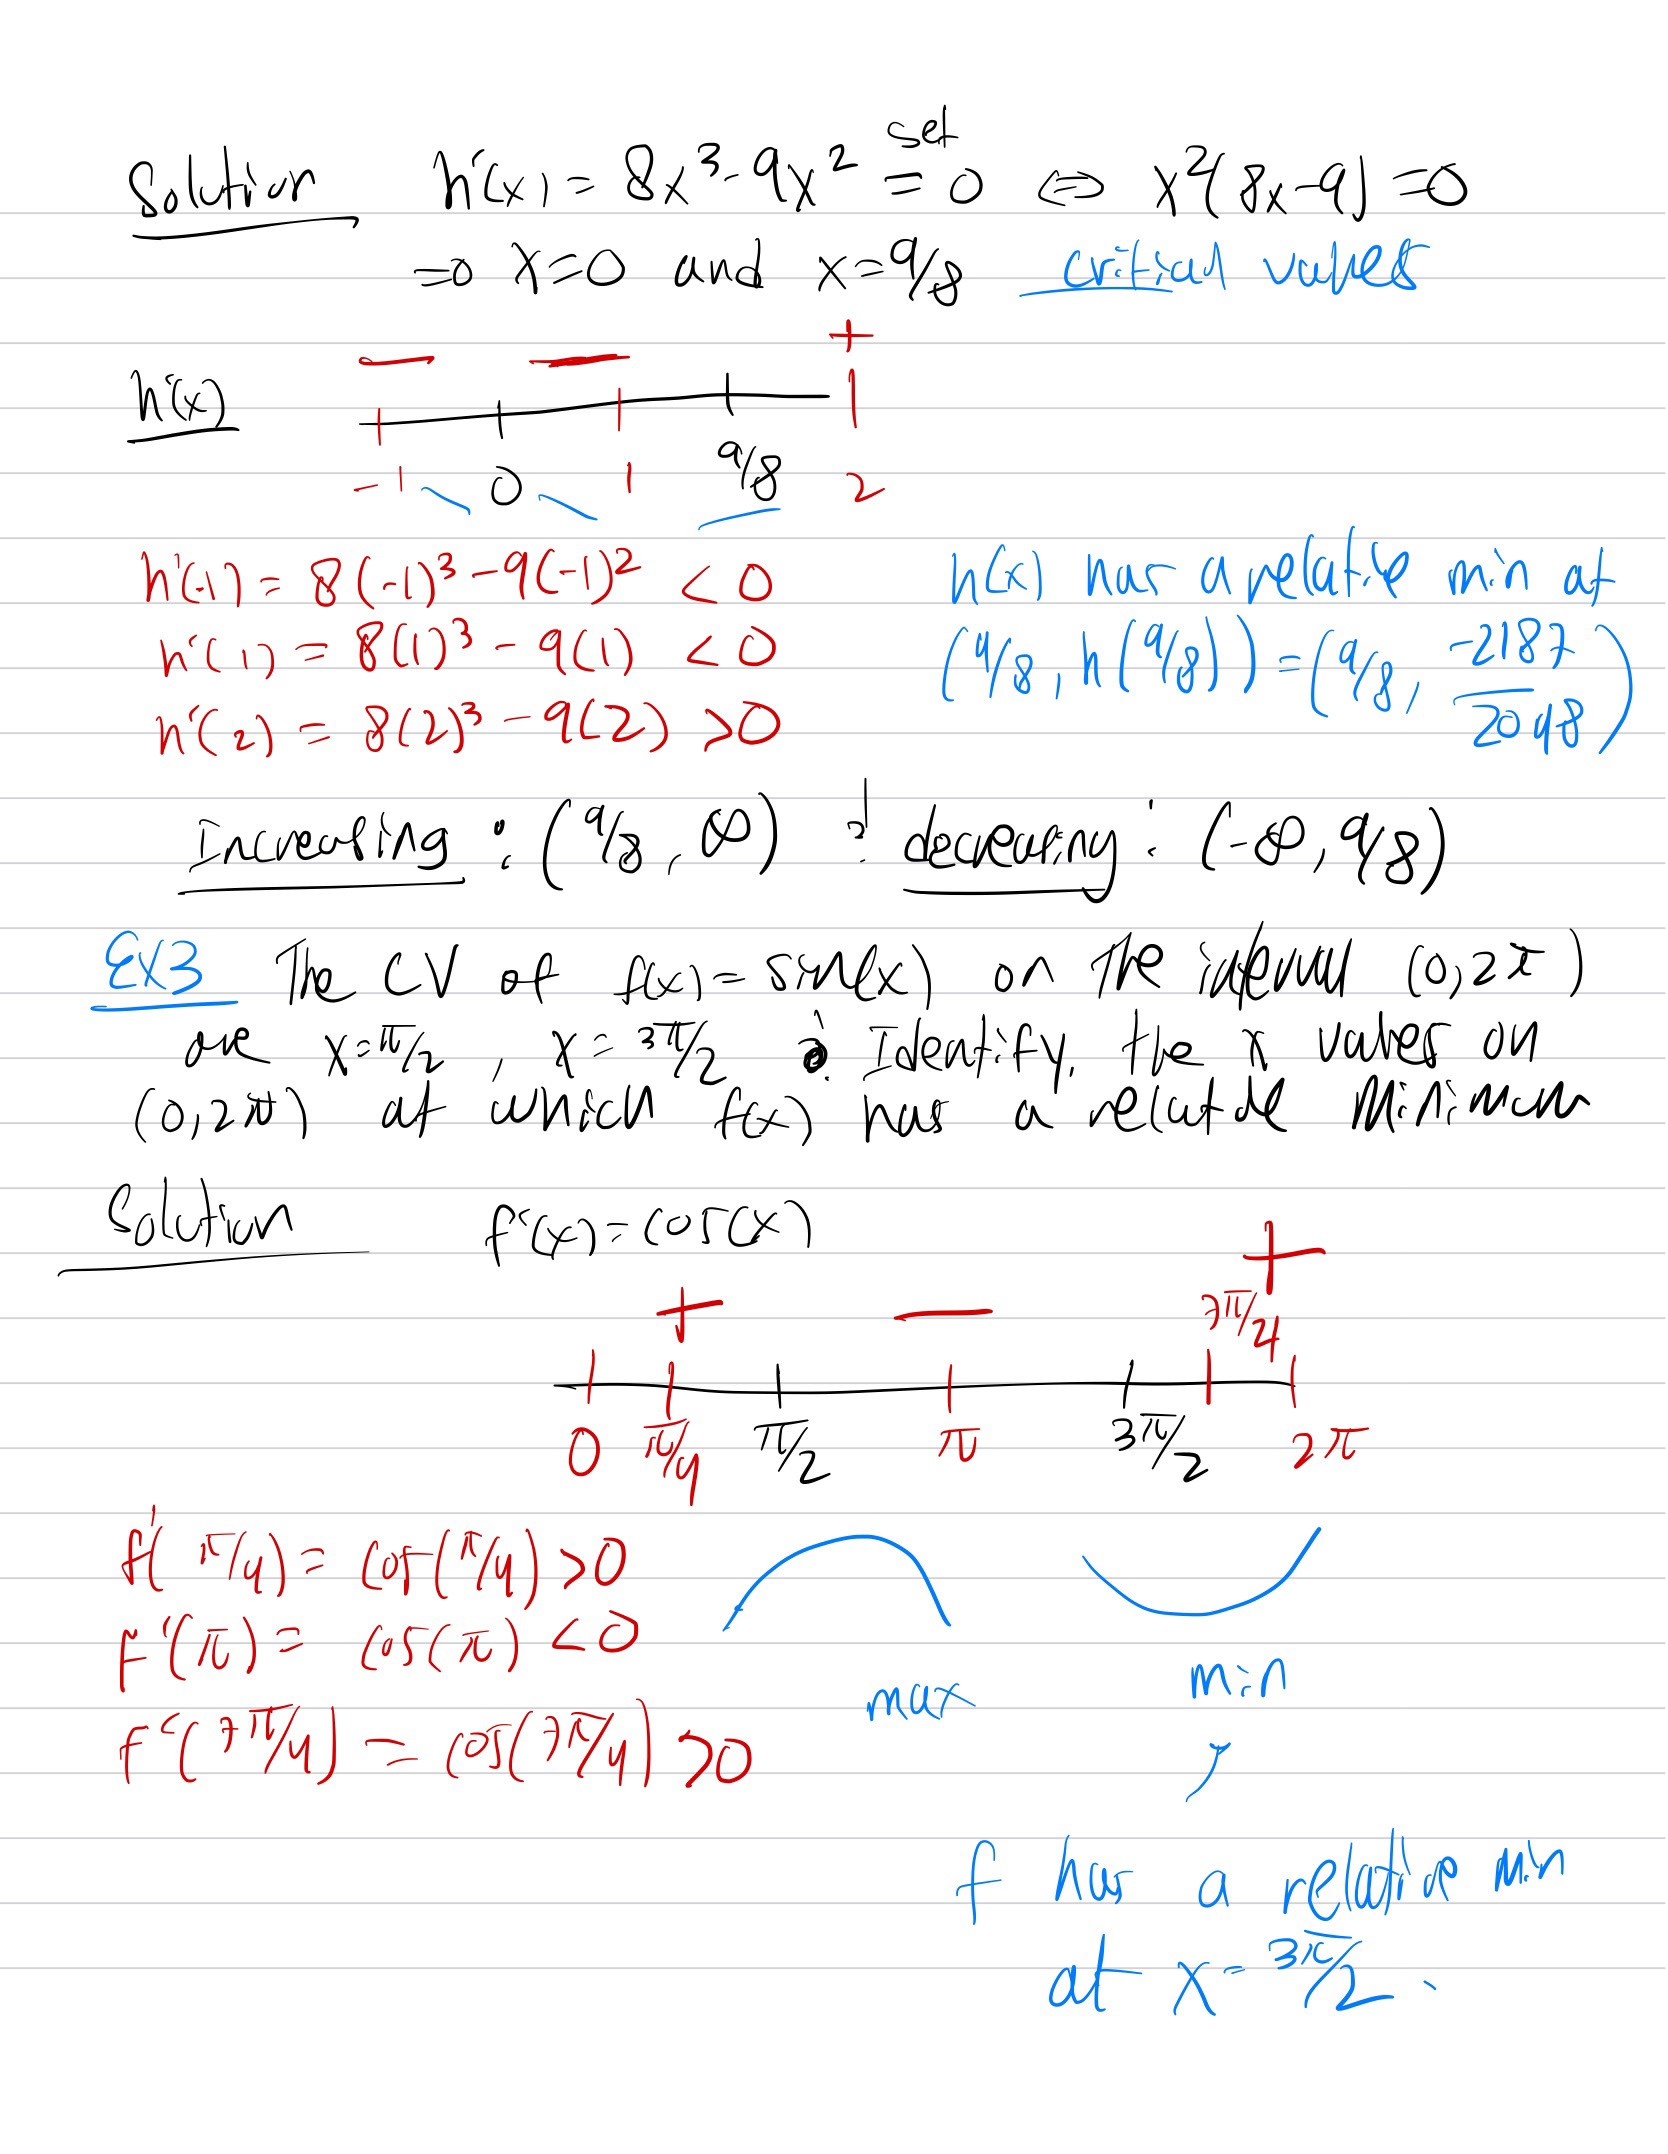 Solution h'(x) = 8x³ - 9x² set = 0 ⇔ x²(8x-9) = 0
⇒ x=0 and x=9/8 critical values
− − +
h'(x)
-1 0 1 9/8 2
h'(-1) = 8(-1)³ - 9(-1)² < 0
h'(1) = 8(1)³ - 9(1) < 0
h'(2) = 8(2)³ - 9(2) > 0
h(x) has a relative min at
(9/8, h(9/8)) = (9/8, -2187/2048)
Increasing : (9/8, ∞) & decreasing : (-∞, 9/8)
EX3 The CV of f(x) = sin(x) on the interval (0, 2π)
are x=π/2, x = 3π/2. Identify the x values on
(0, 2π) at which f(x) has a relative minimum
Solution f'(x) = cos(x)
+ − +
7π/4
0 π/4 π/2 π 3π/2 2π
f'(π/4) = cos(π/4) > 0
f'(π) = cos(π) < 0
f'(7π/4) = cos(7π/4) > 0
max min
f has a relative min
at x = 3π/2.